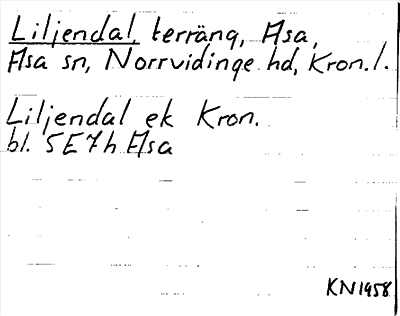 Liljendal, terräng, Asa,
Asa sn, Norrvidinge hd, Kron. l.
Liljendal ek Kron.
bl. 5E7h Asa
KN1958